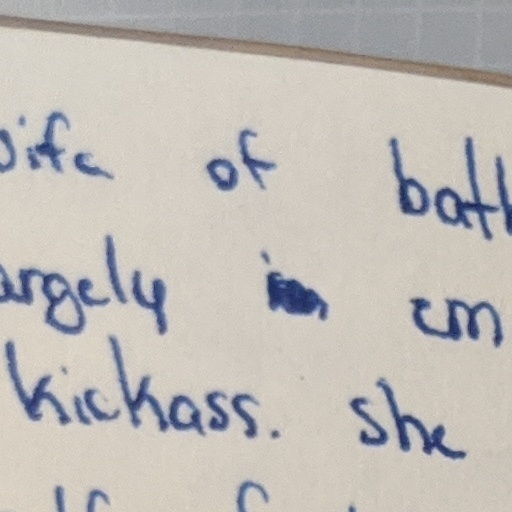 wife of bath
argely in em
kickass. she